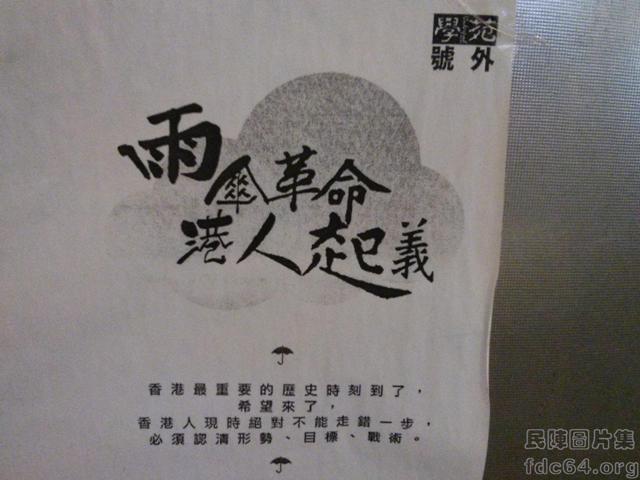 學苑
號外
雨傘革命
港人起義
香港最重要的歷史時刻到了，
希望來了，
香港人現時絕對不能走錯一步，
必須認清形勢、目標、戰術。
民陣圖片集
fdc64.org